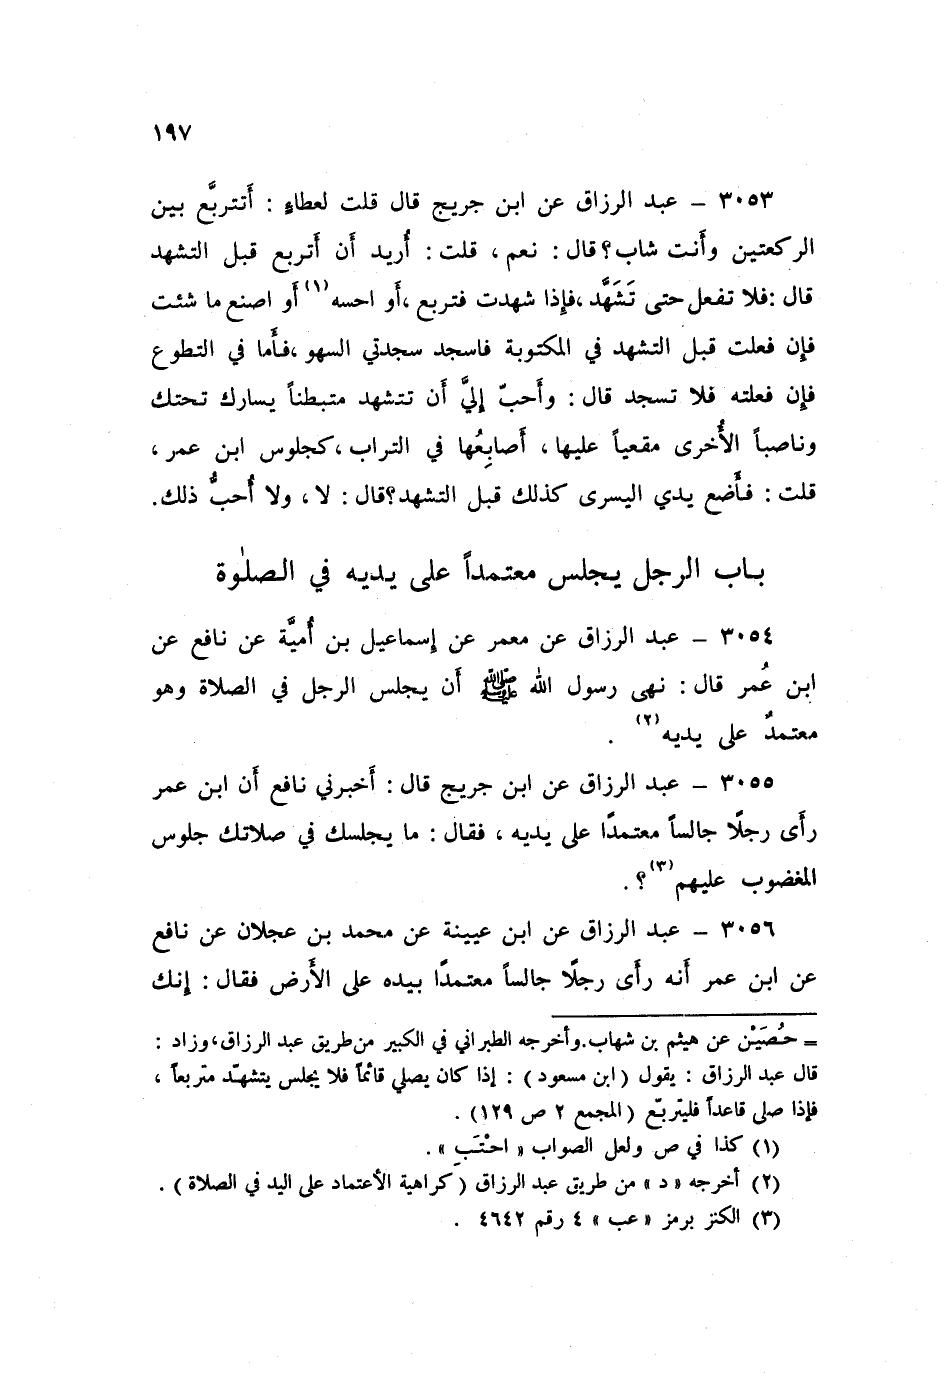 ١٩٧
٣٠٥٣ – عبد الرزاق عن ابن جريج قال قلت لعطاءٍ : أَتتربَّع بين
الركعتين وأَنت شاب؟ قال : نعم ، قلت : أُريد أَن أَتربع قبل التشهد
قال : فلا تفعل حتى تَشَهَّد ، فإِذا شهدت فتربع ، أَو احسه(١) أَو اصنع ما شئت
فإِن فعلت قبل التشهد في المكتوبة فاسجد سجدتي السهو ، فأَما في التطوع
فإِن فعلته فلا تسجد قال : وأَحبّ إِليَّ أَن تتشهد متبطناً يسارك تحتك
وناصباً الأُخرى مقعياً عليها ، أَصابِعُها في التراب ، كجلوس ابن عمر ،
قلت : فأَضع يدي اليسرى كذلك قبل التشهد؟ قال : لا ، ولا أُحبُّ ذلك .
باب الرجل يجلس معتمداً على يديه في الصلٰوة
٣٠٥٤ – عبد الرزاق عن معمر عن إِسماعيل بن أُميَّة عن نافع عن
ابن عُمر قال : نهى رسول الله ﷺ أَن يجلس الرجل في الصلاة وهو
معتمدٌ على يديه(٢) .
٣٠٥٥ – عبد الرزاق عن ابن جريج قال : أَخبرني نافع أَن ابن عمر
رأَى رجلًا جالساً معتمدًا على يديه ، فقال : ما يجلسك في صلاتك جلوس
المغضوب عليهم(٣)؟ .
٣٠٥٦ – عبد الرزاق عن ابن عيينة عن محمد بن عجلان عن نافع
عن ابن عمر أَنه رأَى رجلًا جالساً معتمدًا بيده على الأَرض فقال : إِنك
= حُصَيْن عن هيثم بن شهاب . وأخرجه الطبراني في الكبير من طريق عبد الرزاق ، وزاد :
قال عبد الرزاق : يقول ( ابن مسعود ) : إذا كان يصلي قائماً فلا يجلس يتشهّد متربعاً ،
فإذا صلى قاعداً فليتربّع ( المجمع ٢ ص ١٣٩ ) .
(١) كذا في ص ولعل الصواب « احْتَبِ » .
(٢) أخرجه « د » من طريق عبد الرزاق ( كراهية الأعتماد على اليد في الصلاة ) .
(٣) الكنز برمز « عب » ٤ رقم ٤٦٤٢ .